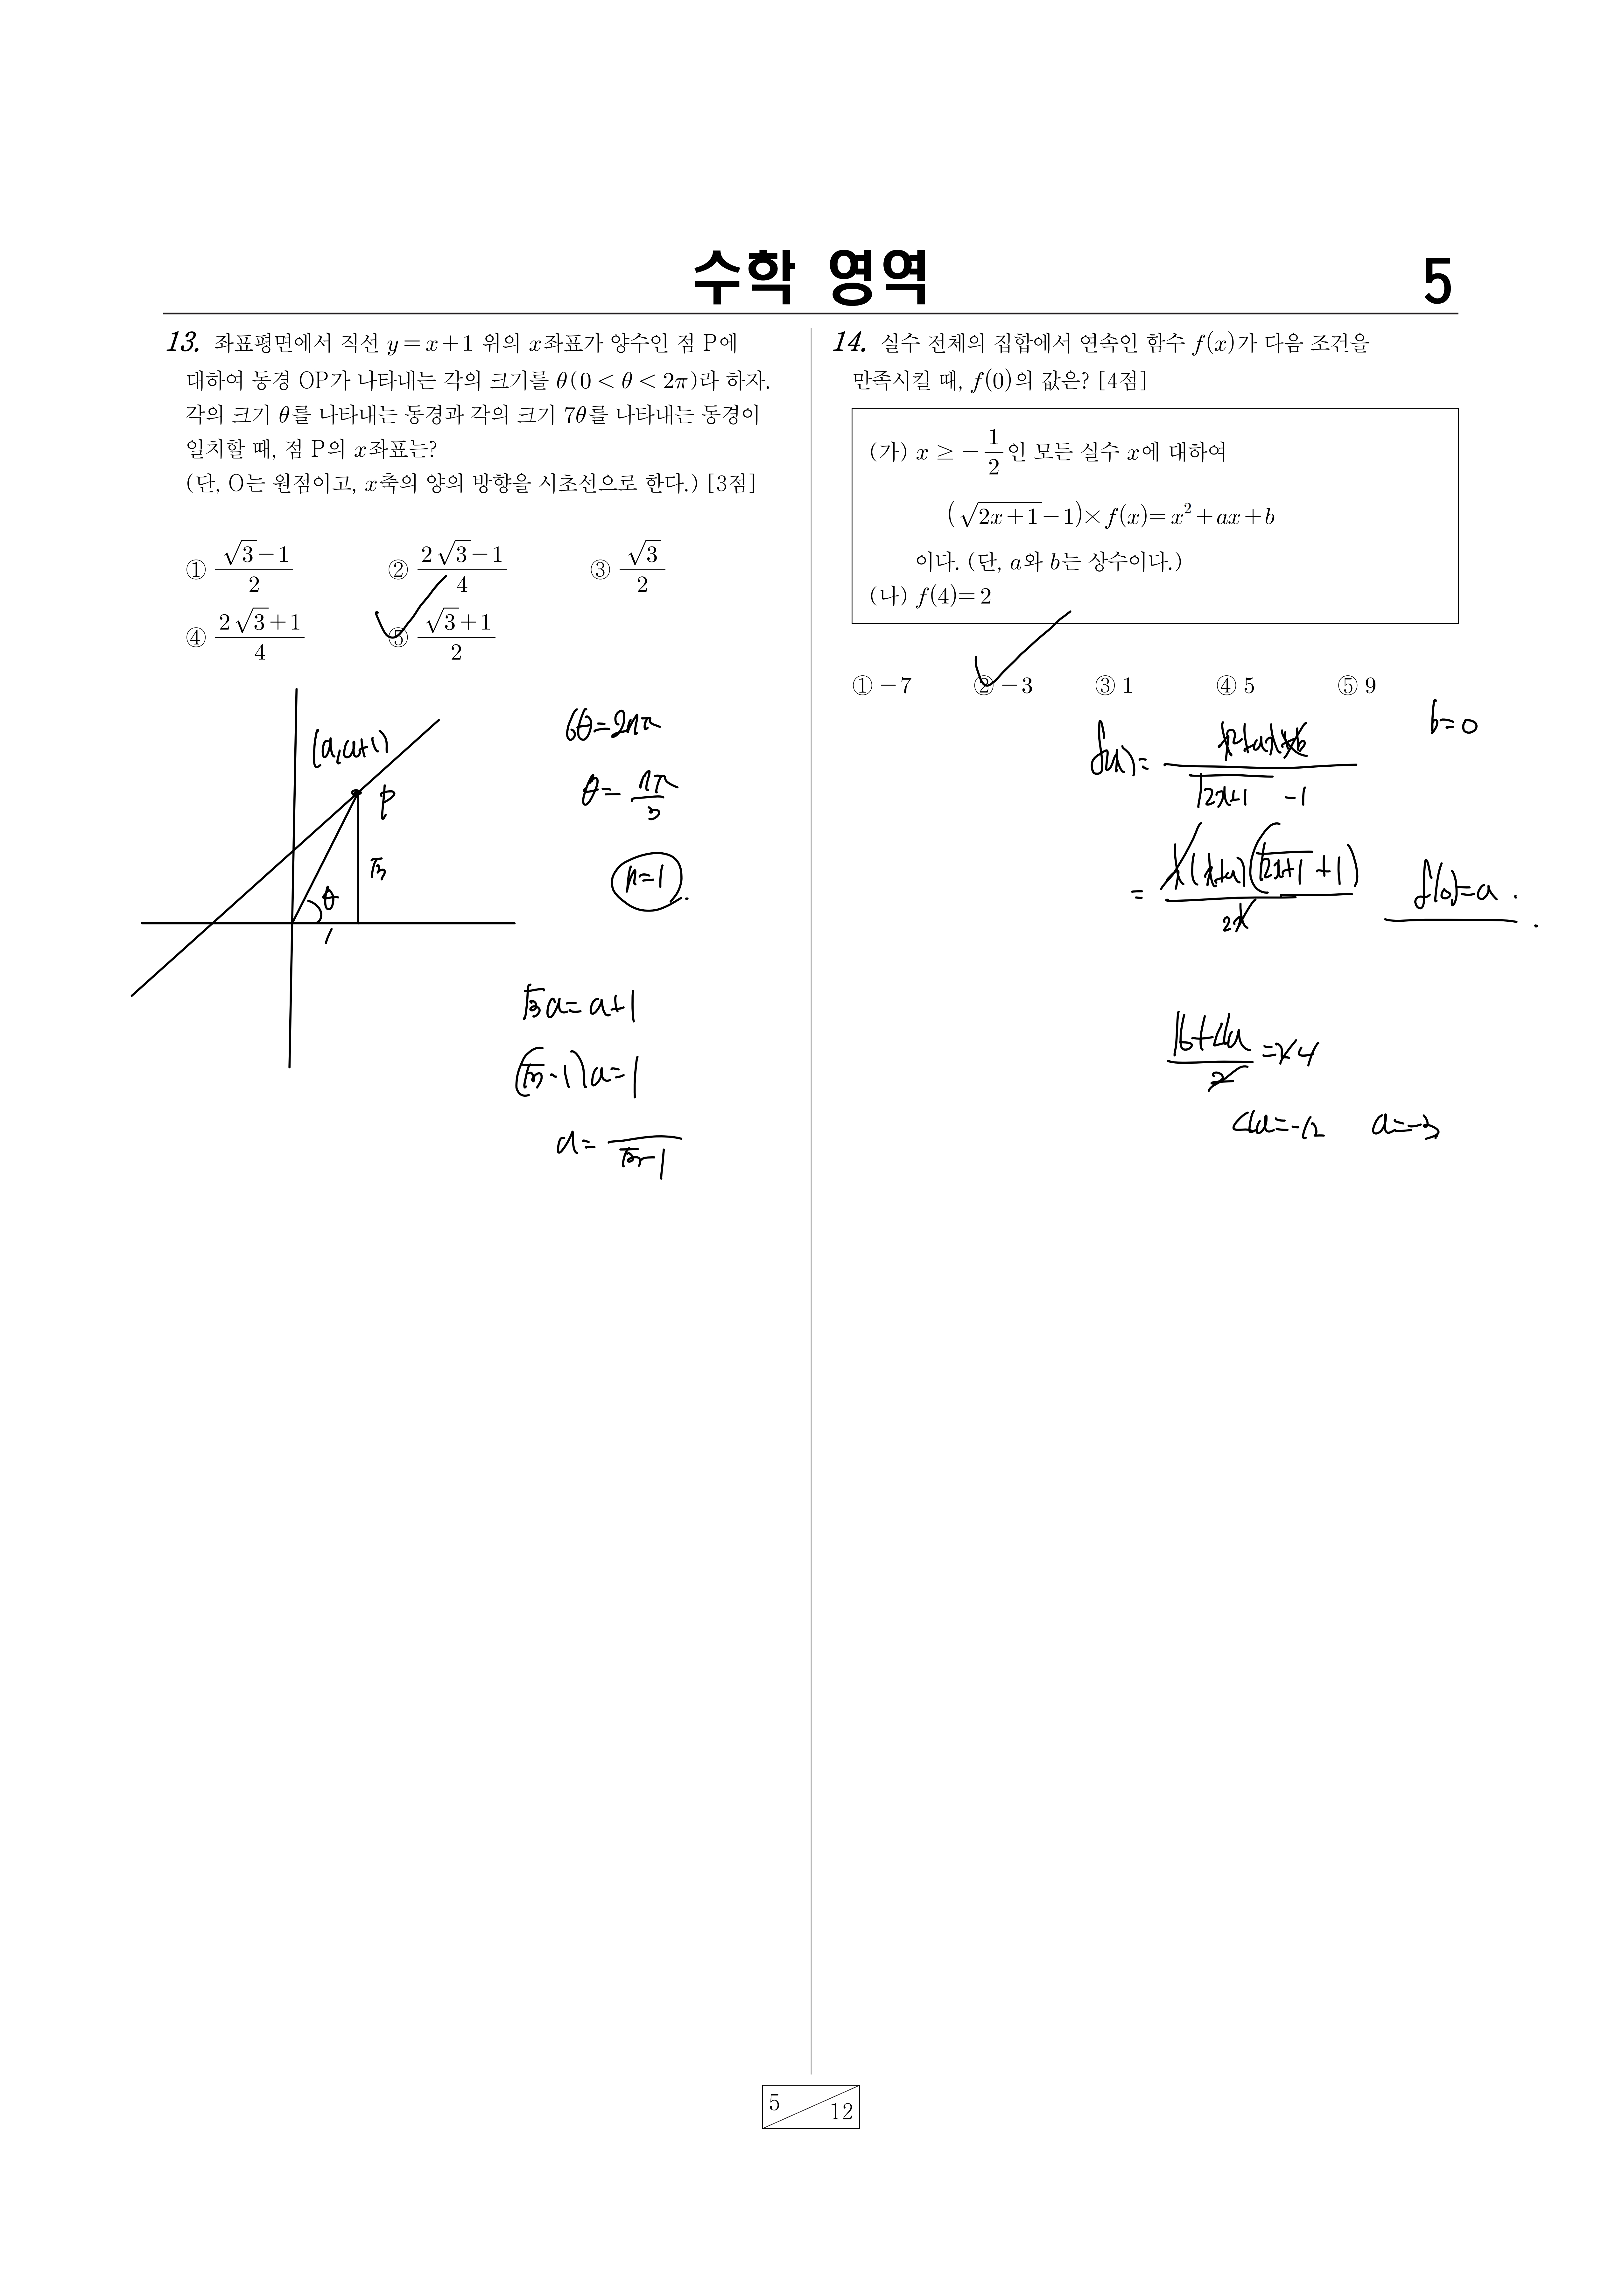 수학 영역
5
13. 좌표평면에서 직선 y=x+1 위의 x좌표가 양수인 점 P에
대하여 동경 OP가 나타내는 각의 크기를 θ(0<θ<2π)라 하자.
각의 크기 θ를 나타내는 동경과 각의 크기 7θ를 나타내는 동경이
일치할 때, 점 P의 x좌표는?
(단, O는 원점이고, x축의 양의 방향을 시초선으로 한다.) [3점]
① (√3-1)/2 ② (2√3-1)/4 ③ √3/2
④ (2√3+1)/4 ⑤ (√3+1)/2
(a, a+1)
P
√3
θ
1
6θ=2nπ
θ=nπ/3
n=1.
√3a=a+1
(√3-1)a=1
a= /(√3-1)
14. 실수 전체의 집합에서 연속인 함수 f(x)가 다음 조건을
만족시킬 때, f(0)의 값은? [4점]
(가) x ≥ -1/2인 모든 실수 x에 대하여
(√(2x+1)-1)×f(x)=x²+ax+b
이다. (단, a와 b는 상수이다.)
(나) f(4)=2
① -7 ② -3 ③ 1 ④ 5 ⑤ 9
b=0
f(x)=(x²+ax+b)/(√(2x+1) -1)
= x(x+a)(√(2x+1)+1)/2x
f(0)=a.
(16+4a)/2=2 4
4a=-12 a=-3
5
12